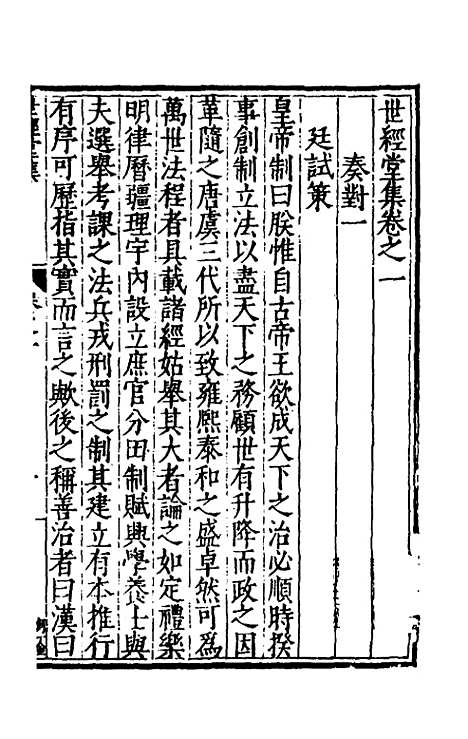 世經堂集卷之一
奏對一
廷試策
皇帝制曰朕惟自古帝王欲成天下之治必順時揆
事創制立法以盡天下之務顧世有升降而政之因
革隨之唐虞三代所以致雍熙泰和之盛卓然可為
萬世法程者具載諸經姑舉其大者論之如定禮樂
明律曆疆理宇內設立庶官分田制賦興學養士與
夫選舉考課之法兵戎刑罰之制其建立有本推行
有序可歷指其實而言之歟後之稱善治者曰漢曰
世經堂集
卷之一
一